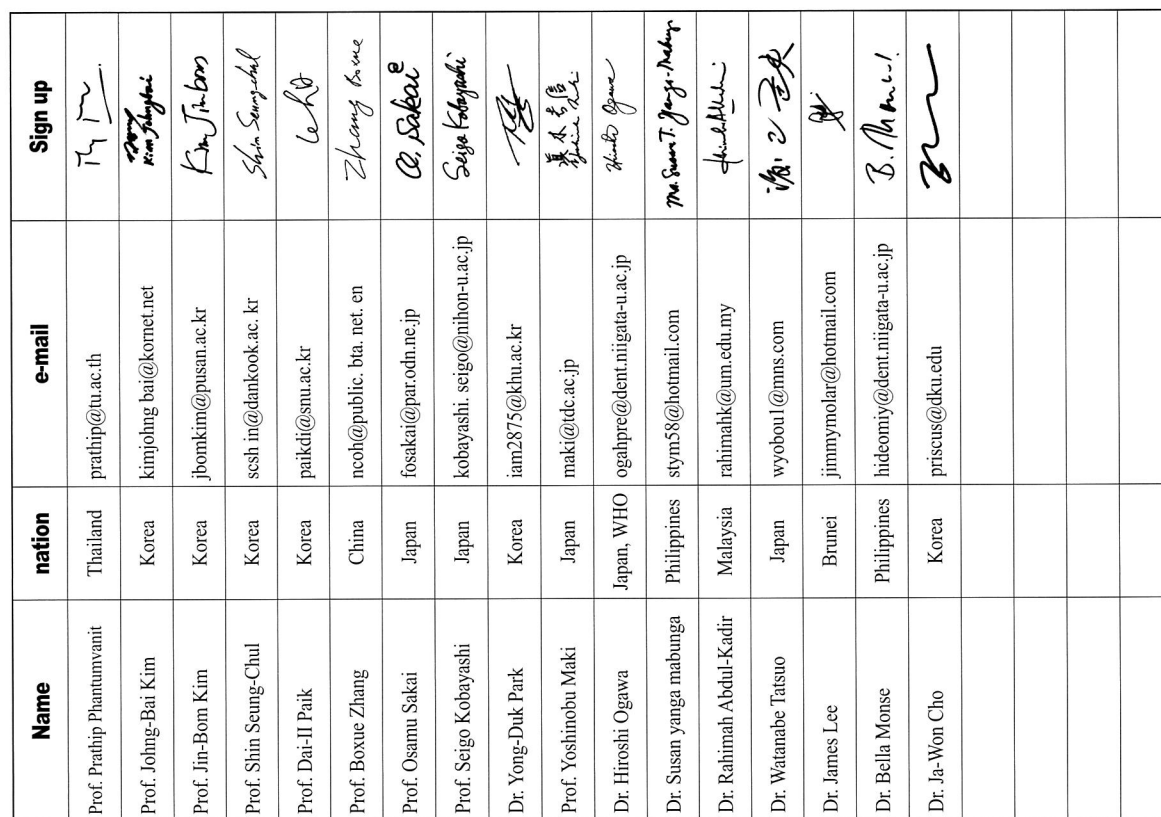 Name nation e-mail Sign up
Prof. Prathip Phantumvanit Thailand prathip@tu.ac.th
Prof. Johng-Bai Kim Korea kimjohng bai@kornet.net Kim Johngbai
Prof. Jin-Bom Kim Korea jbomkim@pusan.ac.kr Kim Jinbom
Prof. Shin Seung-Chul Korea scsh in@dankook.ac. kr Shin Seung-chul
Prof. Dai-Il Paik Korea paikdi@snu.ac.kr
Prof. Boxue Zhang China ncoh@public. bta. net. en Zhang Boxue
Prof. Osamu Sakai Japan fosakai@par.odn.ne.jp O. Sakai
Prof. Seigo Kobayashi Japan kobayashi. seigo@nihon-u.ac.jp Seigo Kobayashi
Dr. Yong-Duk Park Korea iam2875@khu.ac.kr
Prof. Yoshinobu Maki Japan maki@tdc.ac.jp
Dr. Hiroshi Ogawa Japan, WHO ogahpre@dent.niigata-u.ac.jp Hiroshi Ogawa
Dr. Susan yanga mabunga Philippines stym58@hotmail.com Ma. Susan T. Yanga-Mabunga
Dr. Rahimah Abdul-Kadir Malaysia rahimahk@um.edu.my
Dr. Watanabe Tatsuo Japan wyoboul@mns.com
Dr. James Lee Brunei jimmymolar@hotmail.com
Dr. Bella Monse Philippines hideomiy@dent.niigata-u.ac.jp B.
Dr. Ja-Won Cho Korea priscus@dku.edu